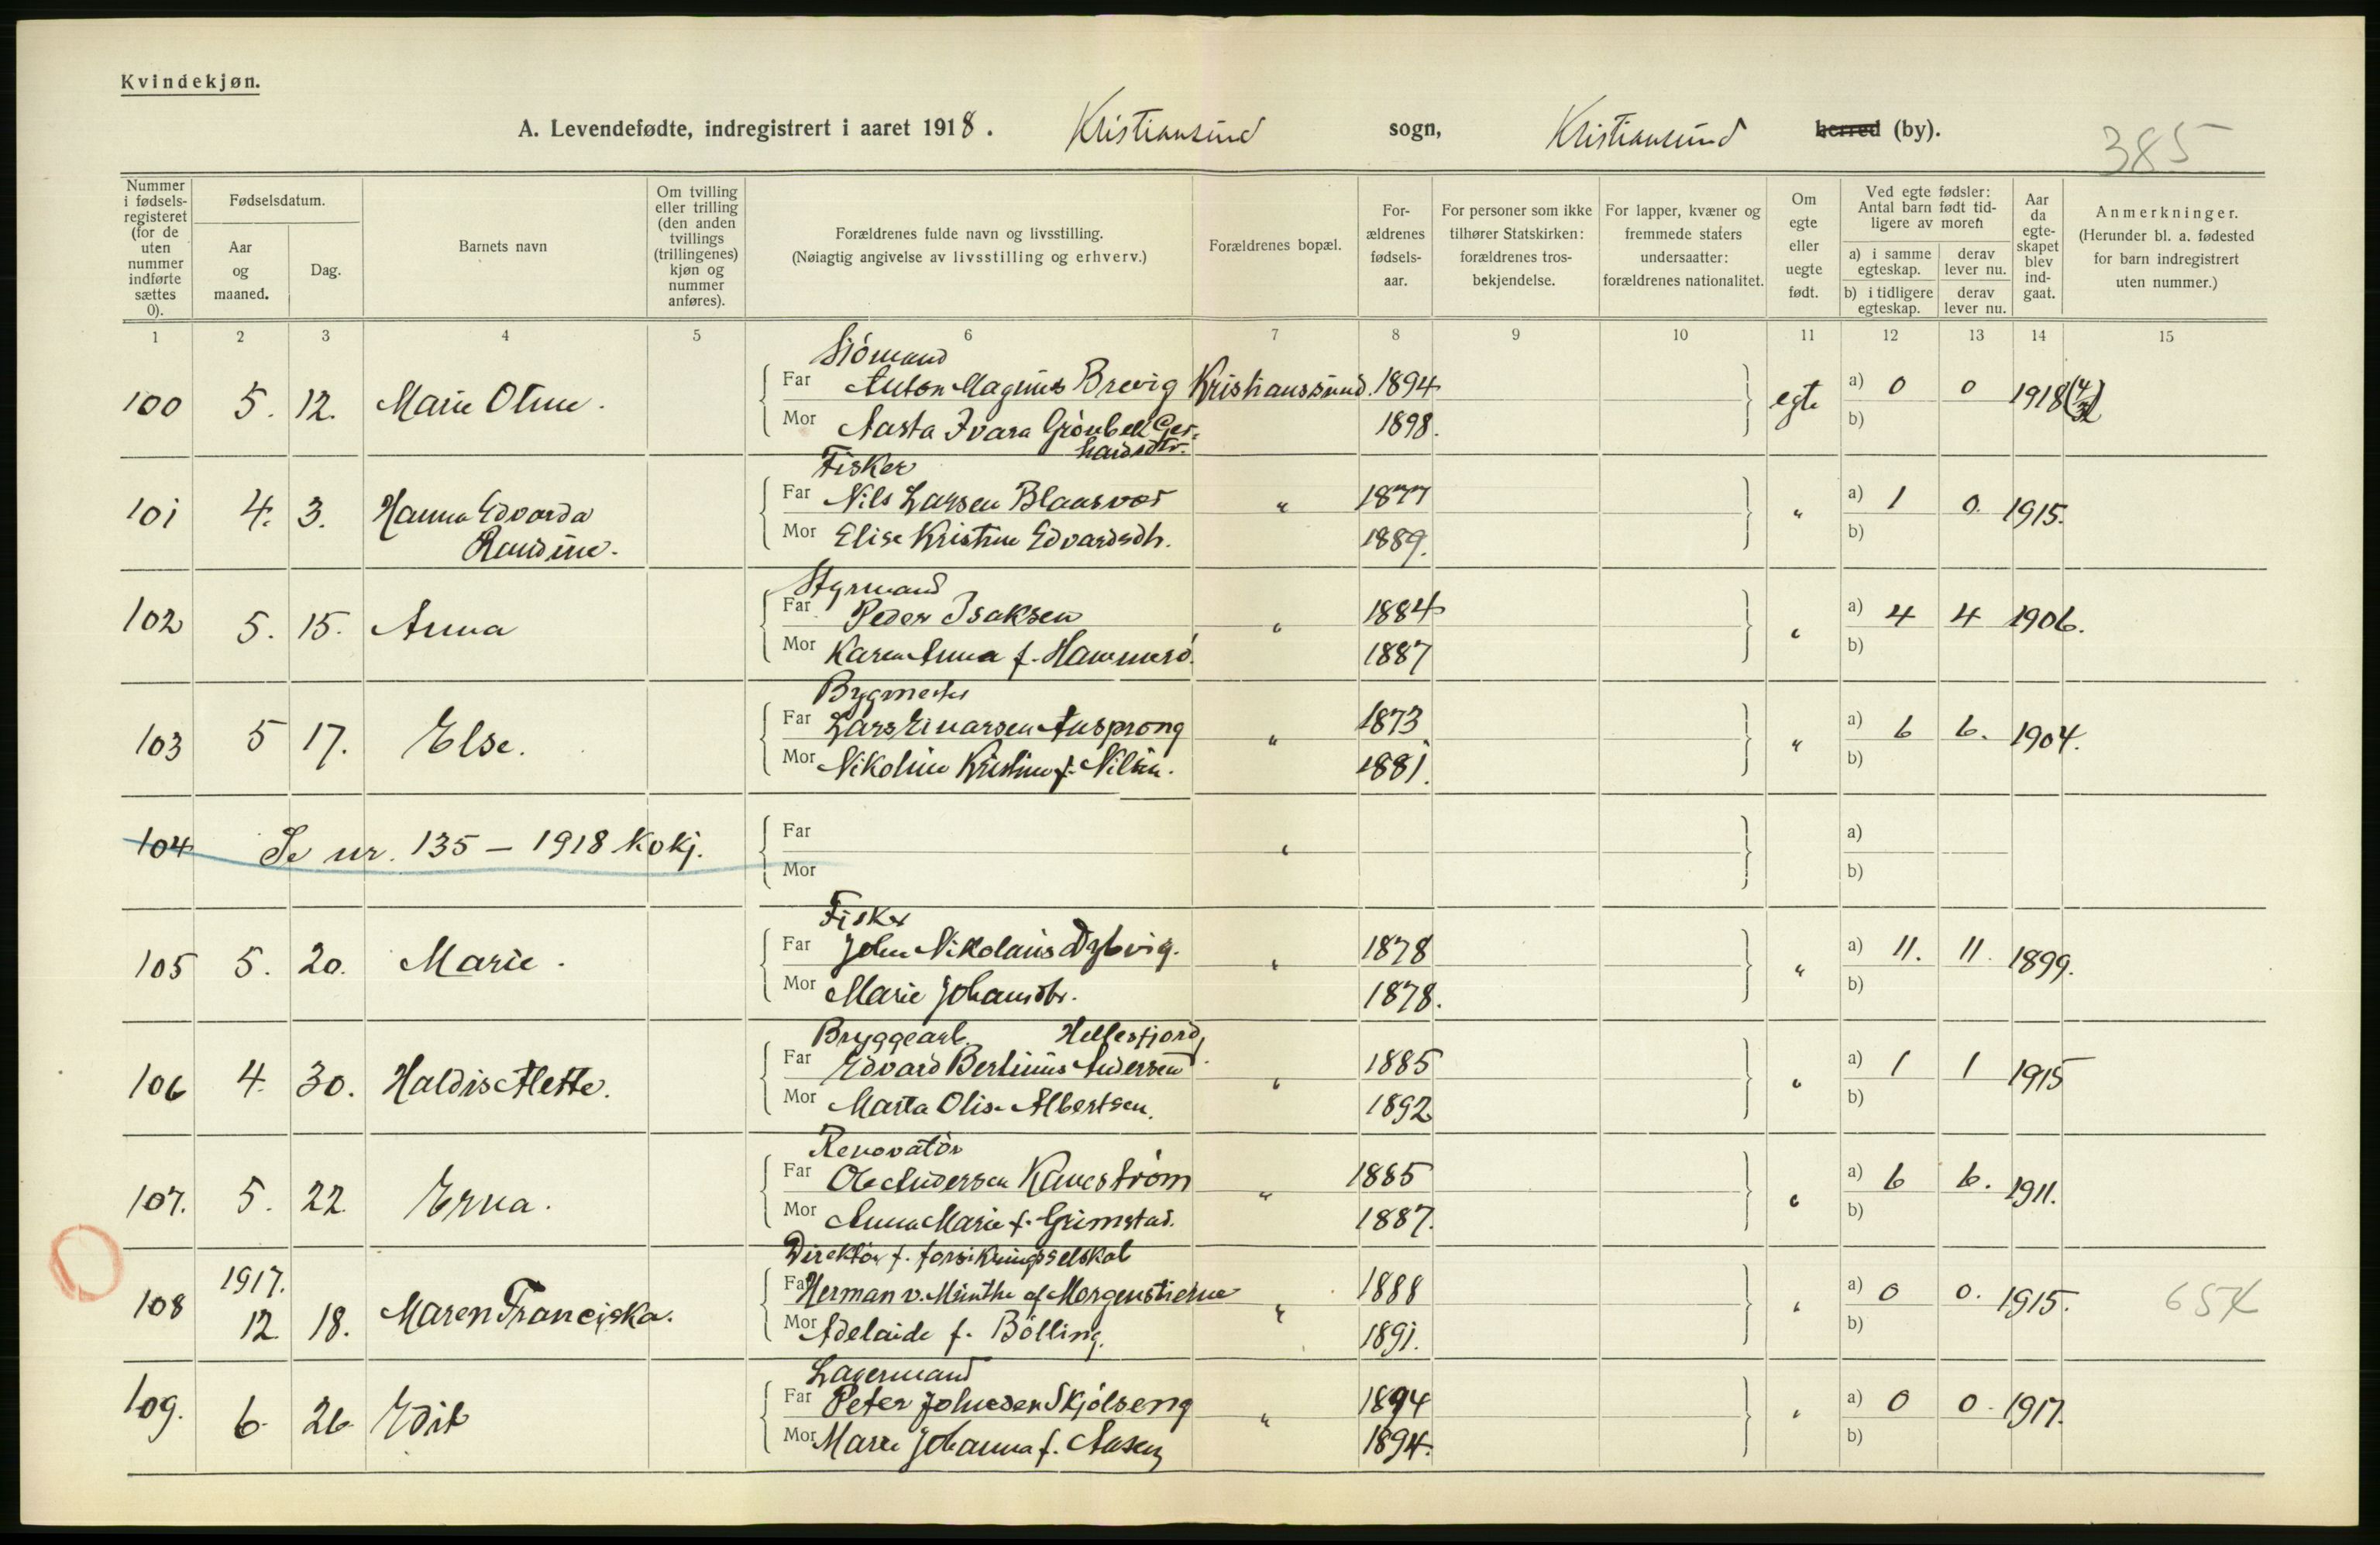 Kvindekjøn.
A. Levendefødte, indregistrert i aaret 1918. Kristiansund sogn, Kristiansund herred (by).
385
Nummer i fødselsregisteret (for de uten nummer indførte sættes 0).
Fødselsdatum.
Aar og maaned.
Dag.
Barnets navn
Om tvilling eller trilling (den anden tvillings (trillingenes) kjøn og nummer anføres).
Forældrenes fulde navn og livsstilling.
(Nøiagtig angivelse av livsstilling og erhverv.)
Forældrenes bopæl.
Forældrenes fødselsaar.
For personer som ikke tilhører Statskirken: forældrenes trosbekjendelse.
For lapper, kvæner og fremmede staters undersaatter: forældrenes nationalitet.
Om egte eller uegte født.
Ved egte fødsler: Antal barn født tidligere av moren
a) i samme egteskap. derav lever nu.
b) i tidligere egteskap. derav lever nu.
Aar da egteskapet blev indgaat.
Anmerkninger.
(Herunder bl. a. fødested for barn indregistrert uten nummer.)
1 2 3 4 5 6 7 8 9 10 11 12 13 14 15
Sjömand
100 5. 12. Marie Oline. Far Anton Magnus Brevig Kristianssund. 1894 egte a) 0 0 1918
Mor Aasta Ivara Grönbeck Ger= 1898. b)
hardsdtr.
Fisker
101 4. 3. Hanna Edvarda Far Nils Larsen Blaasvær " 1877 " a) 1 0. 1915.
Randine. Mor Elise Kristine Edvardsdtr. 1889. b)
Styrmand
102 5. 15. Anna Far Peder Isaksen " 1884 " a) 4 4 1906.
Mor Karen Anna f. Hammerö. 1887 b)
Bygmester
103 5 17. Else. Far Lars Einarsen Ausprong " 1873 " a) 6 6. 1904.
Mor Nikoline Kristine f. Nilsen. 1881. b)
104 Se nr. 135 – 1918 kokj. Far " a)
Mor b)
Fisker
105 5. 20. Marie. Far John Nikolaus Dybvig. " 1878 " a) 11. 11. 1899.
Mor Marie Johansdtr. 1878. b)
Bryggearb. Hellesfjord,
106 4. 30. Haldis Alette. Far Edvard Bertinius Andersen " 1885 " a) 1 1 1915
Mor Marta Olise Albertsen. 1892 b)
Renovatör
107. 5. 22. Erna. Far Ole Andersen Kaneström " 1885 " a) 6 6. 1911.
Mor Anna Marie f. Grimstad. 1887. b)
Direktör f. forsikringsselskab
108 1917. 12 18. Maren Franciska. Far Herman v. Munthe af Morgenstierne " 1888 " a) 0 0. 1915. 654
Mor Adelaide f. Bölling. 1891. b)
Lagermand
109. 6. 26 Edit Far Peter Johnesen Skjölseng " 1894 " a) 0 0. 1917.
Mor Marie Johanna f. Aasen 1894. b)